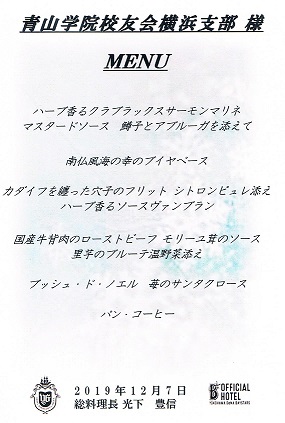 青山学院校友会横浜支部 様
MENU
ハーブ香るクラブラックスサーモンマリネ
マスタードソース 鱒子とアブルーガを添えて
南仏風海の幸のブイヤベース
カダイフを纏った穴子のフリット シトロンピュレ添え
ハーブ香るソースヴァンブラン
国産牛背肉のローストビーフ モリーユ茸のソース
里芋のブルーテ温野菜添え
ブッシュ・ド・ノエル 苺のサンタクロース
パン・コーヒー
2019年12月7日
総料理長 光下 豊信
OFFICIAL
HOTEL
YOKOHAMA DeNA BAYSTARS